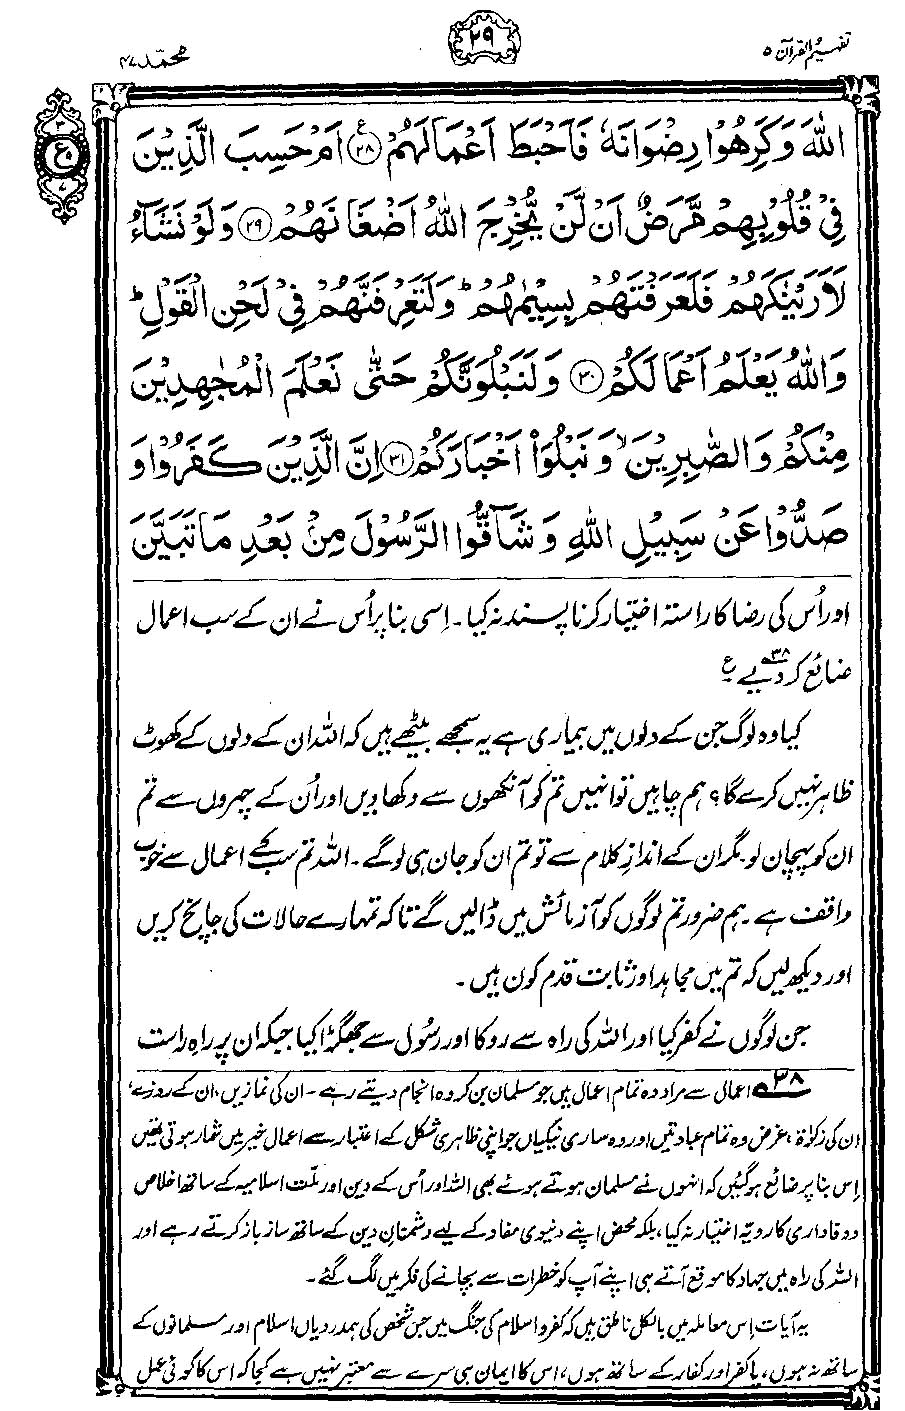 تفہیم القرآن ۵
۲۹
محمّد ۴۷
اللّٰهَ وَكَرِهُوْا رِضْوَانَهٗ فَاَحْبَطَ اَعْمَالَهُمْ ﴿۲۸﴾ اَمْ حَسِبَ الَّذِيْنَ
فِيْ قُلُوْبِهِمْ مَّرَضٌ اَنْ لَّنْ يُّخْرِجَ اللّٰهُ اَضْغَانَهُمْ ﴿۲۹﴾ وَلَوْ نَشَآءُ
لَاَرَيْنٰكَهُمْ فَلَعَرَفْتَهُمْ بِسِيْمٰهُمْ ؕ وَلَتَعْرِفَنَّهُمْ فِيْ لَحْنِ الْقَوْلِ ؕ
وَاللّٰهُ يَعْلَمُ اَعْمَالَكُمْ ﴿۳۰﴾ وَلَنَبْلُوَنَّكُمْ حَتّٰى نَعْلَمَ الْمُجٰهِدِيْنَ
مِنْكُمْ وَالصّٰبِرِيْنَ ۙ وَنَبْلُوَا۟ اَخْبَارَكُمْ ﴿۳۱﴾ اِنَّ الَّذِيْنَ كَفَرُوْا وَ
صَدُّوْا عَنْ سَبِيْلِ اللّٰهِ وَشَآقُّوا الرَّسُوْلَ مِنْۢ بَعْدِ مَا تَبَيَّنَ
اور اُس کی رضا کا راستہ اختیار کرنا پسند نہ کیا۔ اِسی بنا پر اُس نے ان کے سب اعمال
ضائع کر دیے ۳۸ ع
کیا وہ لوگ جن کے دلوں میں بیماری ہے یہ سمجھے بیٹھے ہیں کہ اللہ ان کے دلوں کے کھوٹ
ظاہر نہیں کرے گا؟ ہم چاہیں تو انہیں تم کو آنکھوں سے دکھا دیں اور اُن کے چہروں سے تم
ان کو پہچان لو۔ مگر ان کے اندازِ کلام سے تو تم ان کو جان ہی لو گے۔ اللہ تم سب کے اعمال سے خوب
واقف ہے۔ ہم ضرور تم لوگوں کو آزمائش میں ڈالیں گے تاکہ تمہارے حالات کی جانچ کریں
اور دیکھ لیں کہ تم میں مجاہد اور ثابت قدم کون ہیں۔
جن لوگوں نے کفر کیا اور اللہ کی راہ سے روکا اور رسُول سے جھگڑا کیا جبکہ ان پر راہِ راست
۳۸ اعمال سے مراد وہ تمام اعمال ہیں جو مسلمان بن کر وہ انجام دیتے رہے۔ ان کی نمازیں، ان کے روزے،
ان کی زکوٰۃ، غرض وہ تمام عبادتیں اور وہ ساری نیکیاں جو اپنی ظاہری شکل کے اعتبار سے اعمالِ خیر میں شمار ہوتی تھیں
اِس بنا پر ضائع ہو گئیں کہ انہوں نے مسلمان ہوتے ہوئے بھی اللہ اور اُس کے دین اور ملّتِ اسلامیہ کے ساتھ اخلاص
و وفاداری کا رویّہ اختیار نہ کیا، بلکہ محض اپنے دنیوی مفاد کے لیے دشمنانِ دین کے ساتھ ساز باز کرتے رہے اور
اللہ کی راہ میں جہاد کا موقع آتے ہی اپنے آپ کو خطرات سے بچانے کی فکر میں لگ گئے۔
یہ آیات اِس معاملہ میں بالکل ناطق ہیں کہ کفر و اسلام کی جنگ میں جس شخص کی ہمدردیاں اسلام اور مسلمانوں کے
ساتھ نہ ہوں، یا کفر اور کفار کے ساتھ ہوں، اس کا ایمان ہی سرے سے معتبر نہیں ہے کجا کہ اس کا کوئی عمل